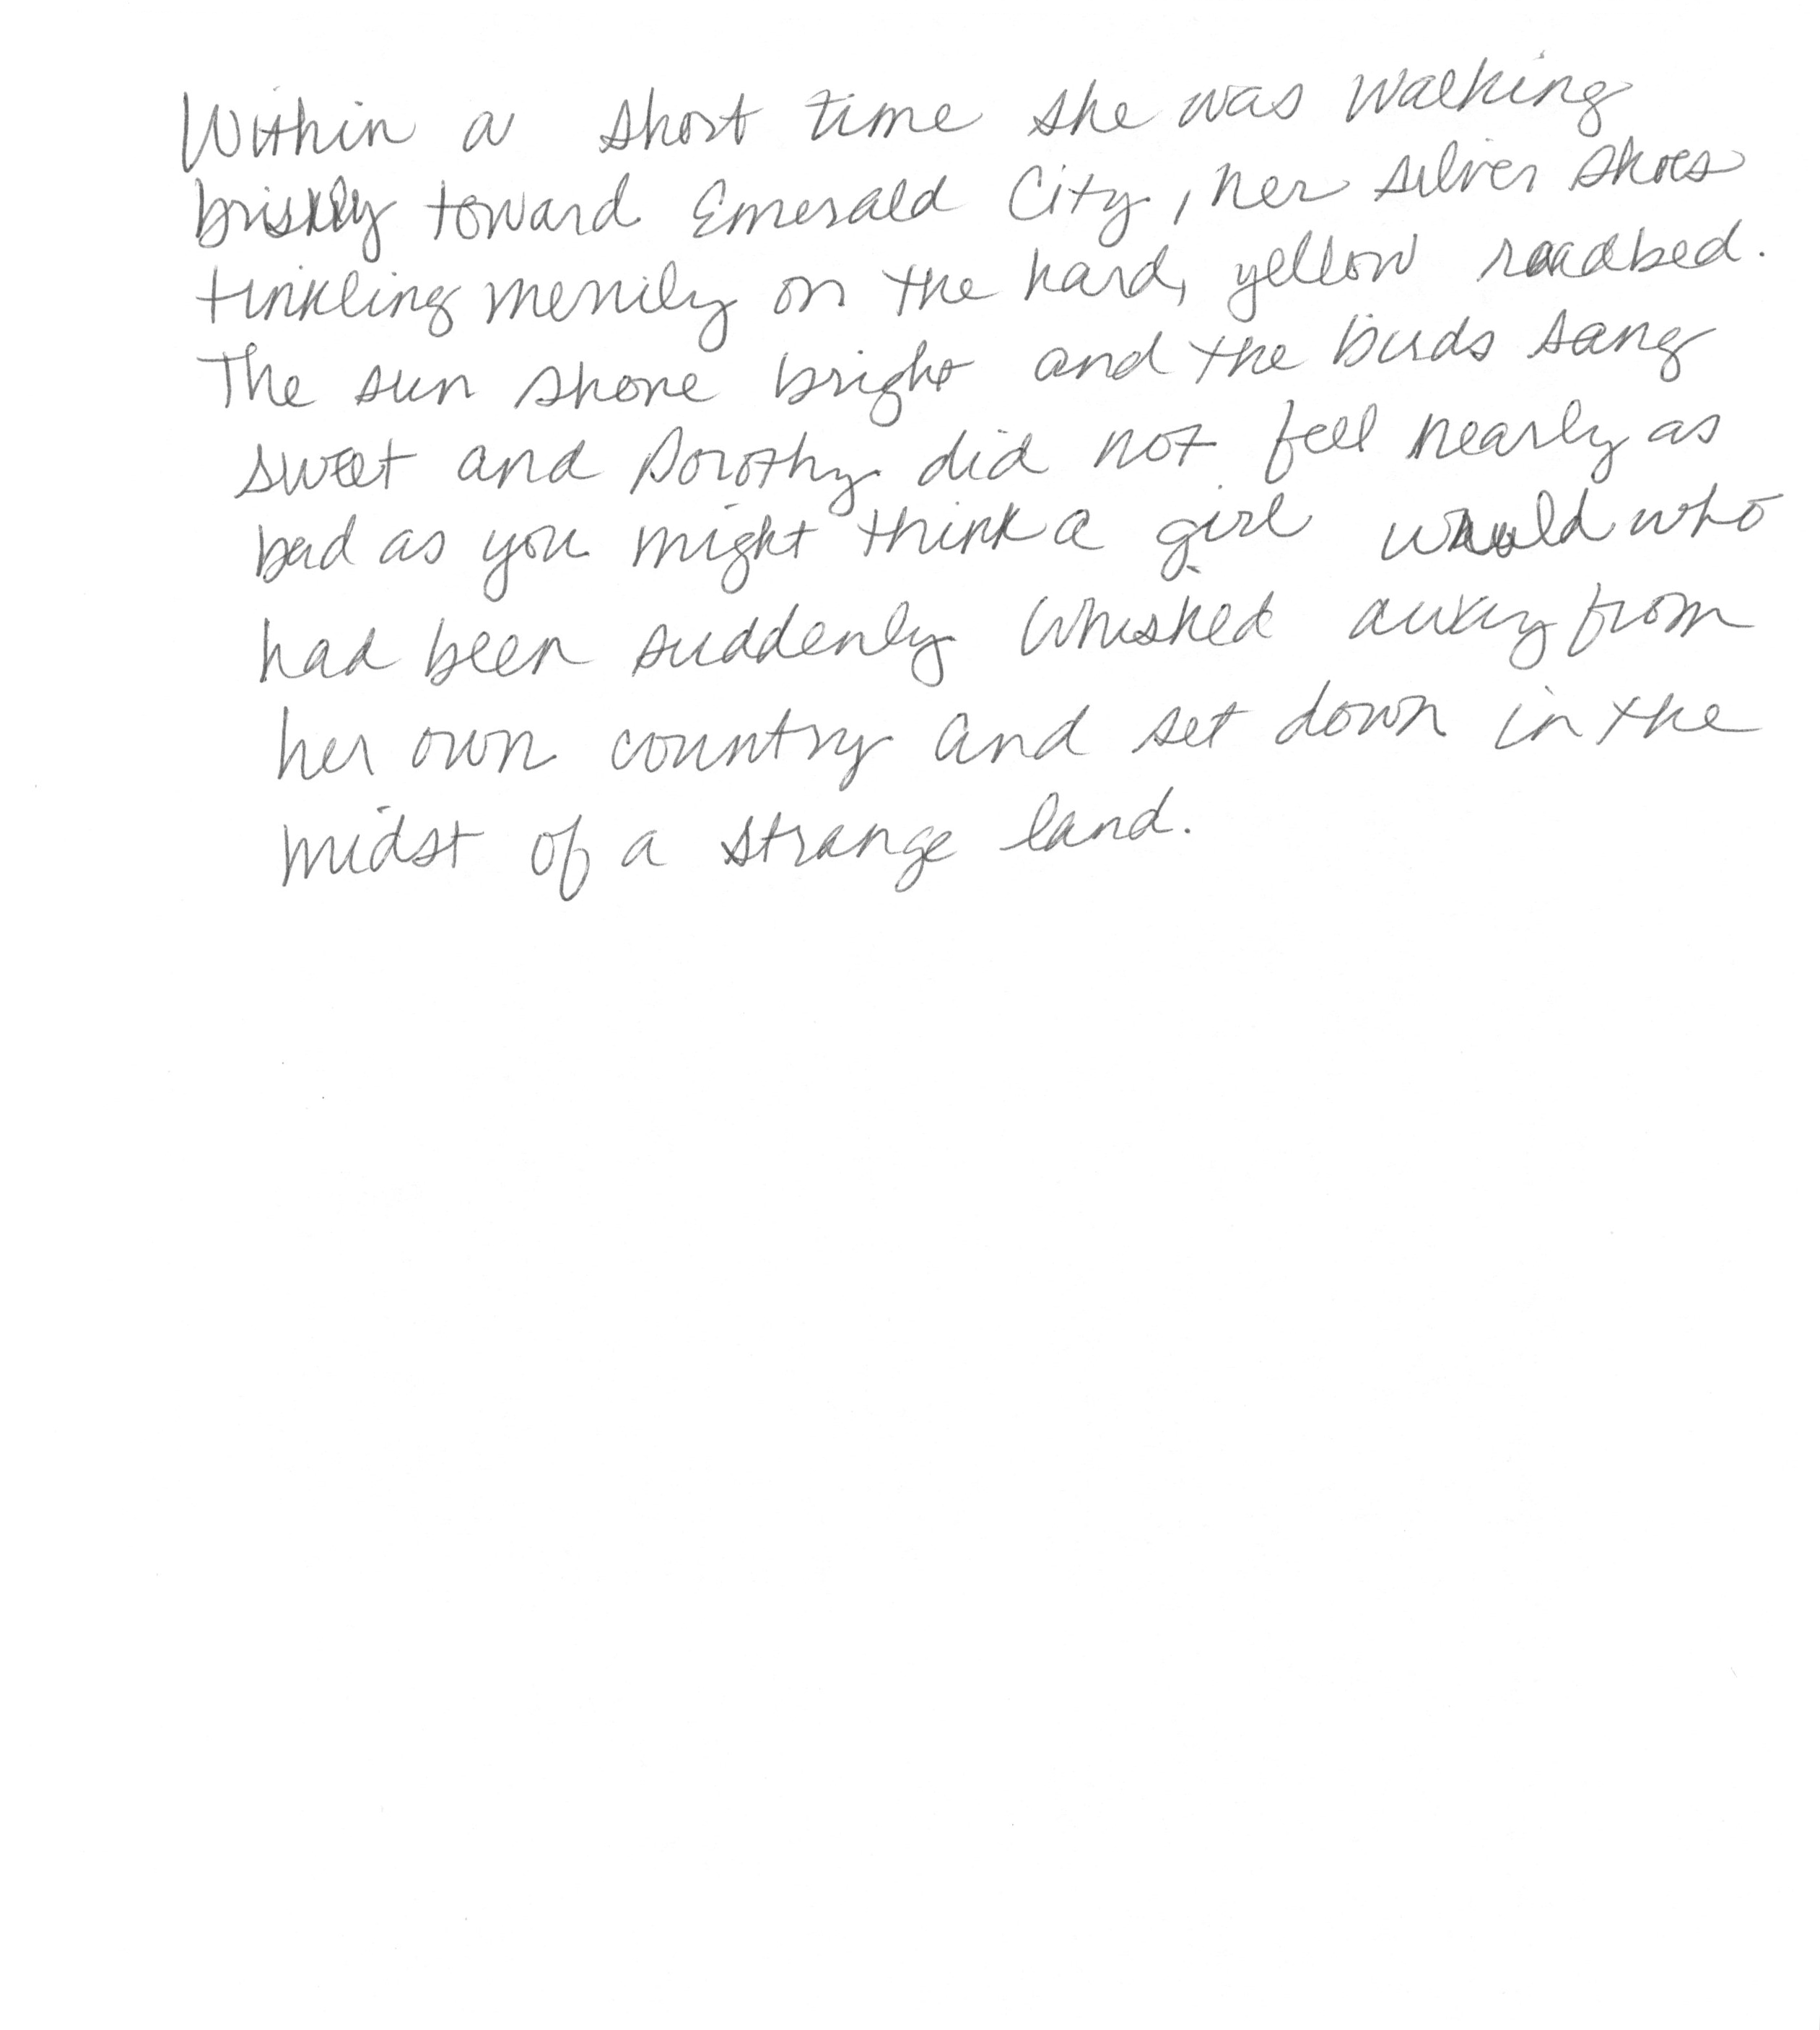 Within a short time she was walking
briskly toward Emerald City, her silver shoes
tinkling merrily on the hard, yellow roadbed.
The sun shone bright and the birds sang
sweet and Dorothy did not feel nearly as
bad as you might think a girl would who
had been suddenly whisked away from
her own country and set down in the
midst of a strange land.